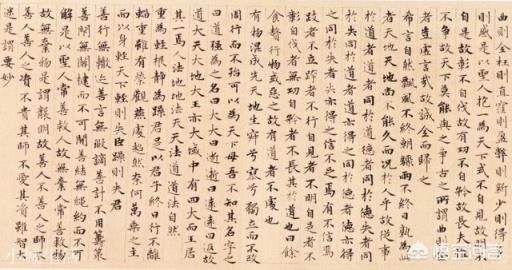 曲則全枉則直窪則盈弊則新少則得多
則惑是以聖人抱一為天下式不自見故明不
自是故彰不自伐故有功不自矜故長夫惟
不争故天下莫能與之争古之所謂曲則全
者豈虛言哉故誠全而歸之
希言自然飄風不終朝驟雨不終日孰為此
者天地天地尚不能久而況於人乎故從事
於道者道者同於道德者同於德失者同
於失同於道者道亦得之同於德者德亦得
之同於失者失亦得之信不足焉有不信焉
跂者不立跨者不行自見者不明自是者不
彰自伐者無功自矜者不長其於道也曰餘
食贅行物或惡之故有道者不處也
有物混成先天地生寂兮寞兮獨立而不改
周行而不殆可以為天下母吾不知其名字之
曰道强為之名曰大大曰逝逝曰遠遠曰返故
道大天大地大王亦大域中有四大而王居
其一焉人法地地法天天法道道法自然
重為輕根靜為躁君是以君子終日行不離
輜重雖有榮觀燕處超然奈何萬乘之主
而以身輕天下輕則失臣躁則失君
善行無轍迹善言無瑕謫善計不用籌策
善閉無關鍵而不可開善結無繩約而不可
解是以聖人常善救人故無棄人常善救物
故無棄物是謂襲明故善人不善人之師
不善人善人之資不貴其師不愛其資雖智大
迷是謂要妙
悟空问答